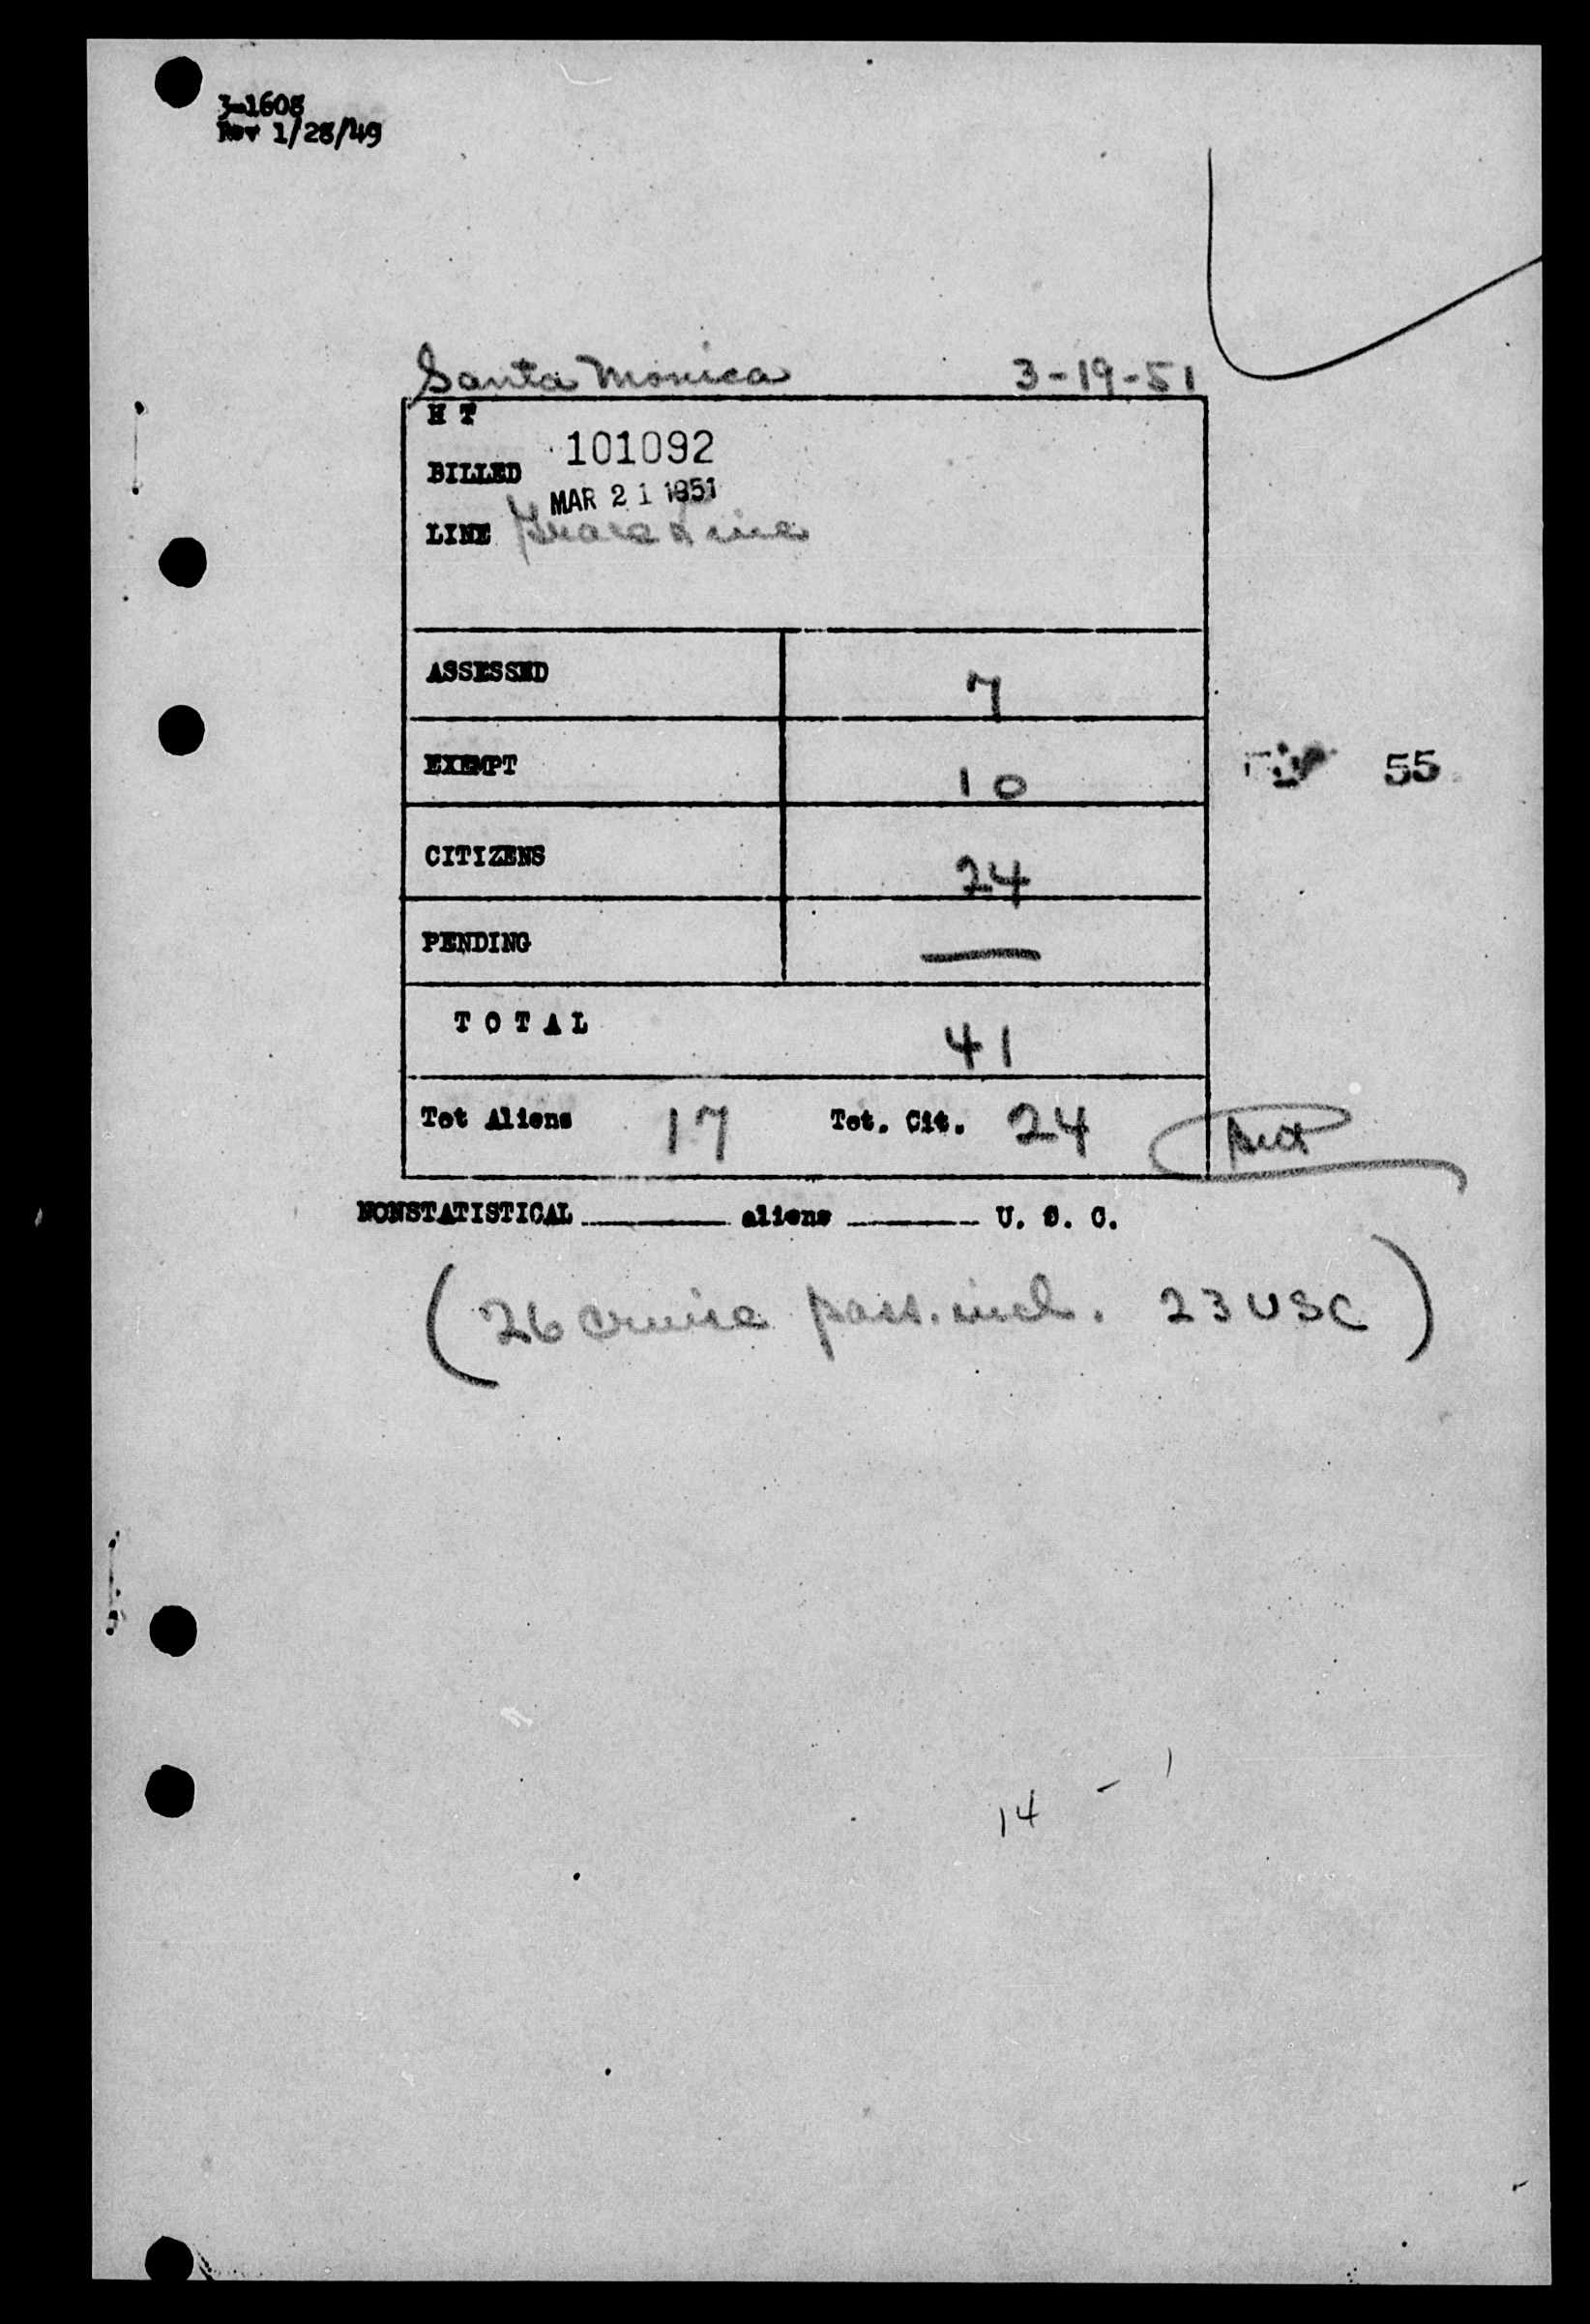 3-1608
Rev 1/28/49
Santa Monica 3-19-51
H T
101092
BILLED
MAR 21 1951
LINE Grace Line
ASSESSED 7
EXEMPT 10
55
CITIZENS 24
PENDING —
TOTAL 41
Tot Aliens 17 Tot. Cit. 24
NONSTATISTICAL ________ aliens ________ U. S. C.
(26 cruise pass. incl. 23 USC)
14 - 1